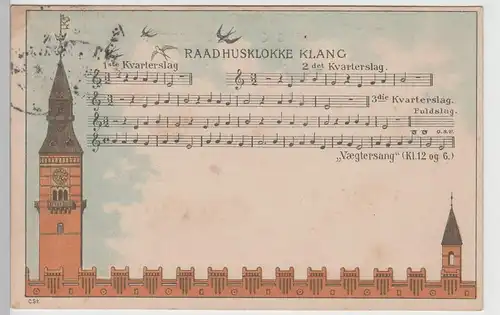 RAADHUSKLOKKE KLANG
1ste Kvarterslag
2 det Kvarterslag.
3die Kvarterslag.
Fuldslag.
o.s.v.
„Vægtersang" (Kl.12 og 6.)